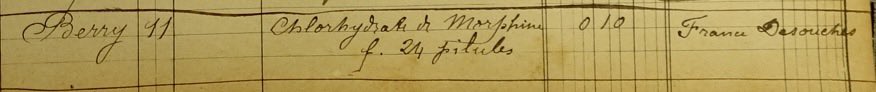 Berry 11 Chlorhydrate de Morphine 0 10 France Desouches
f. 24 pilules